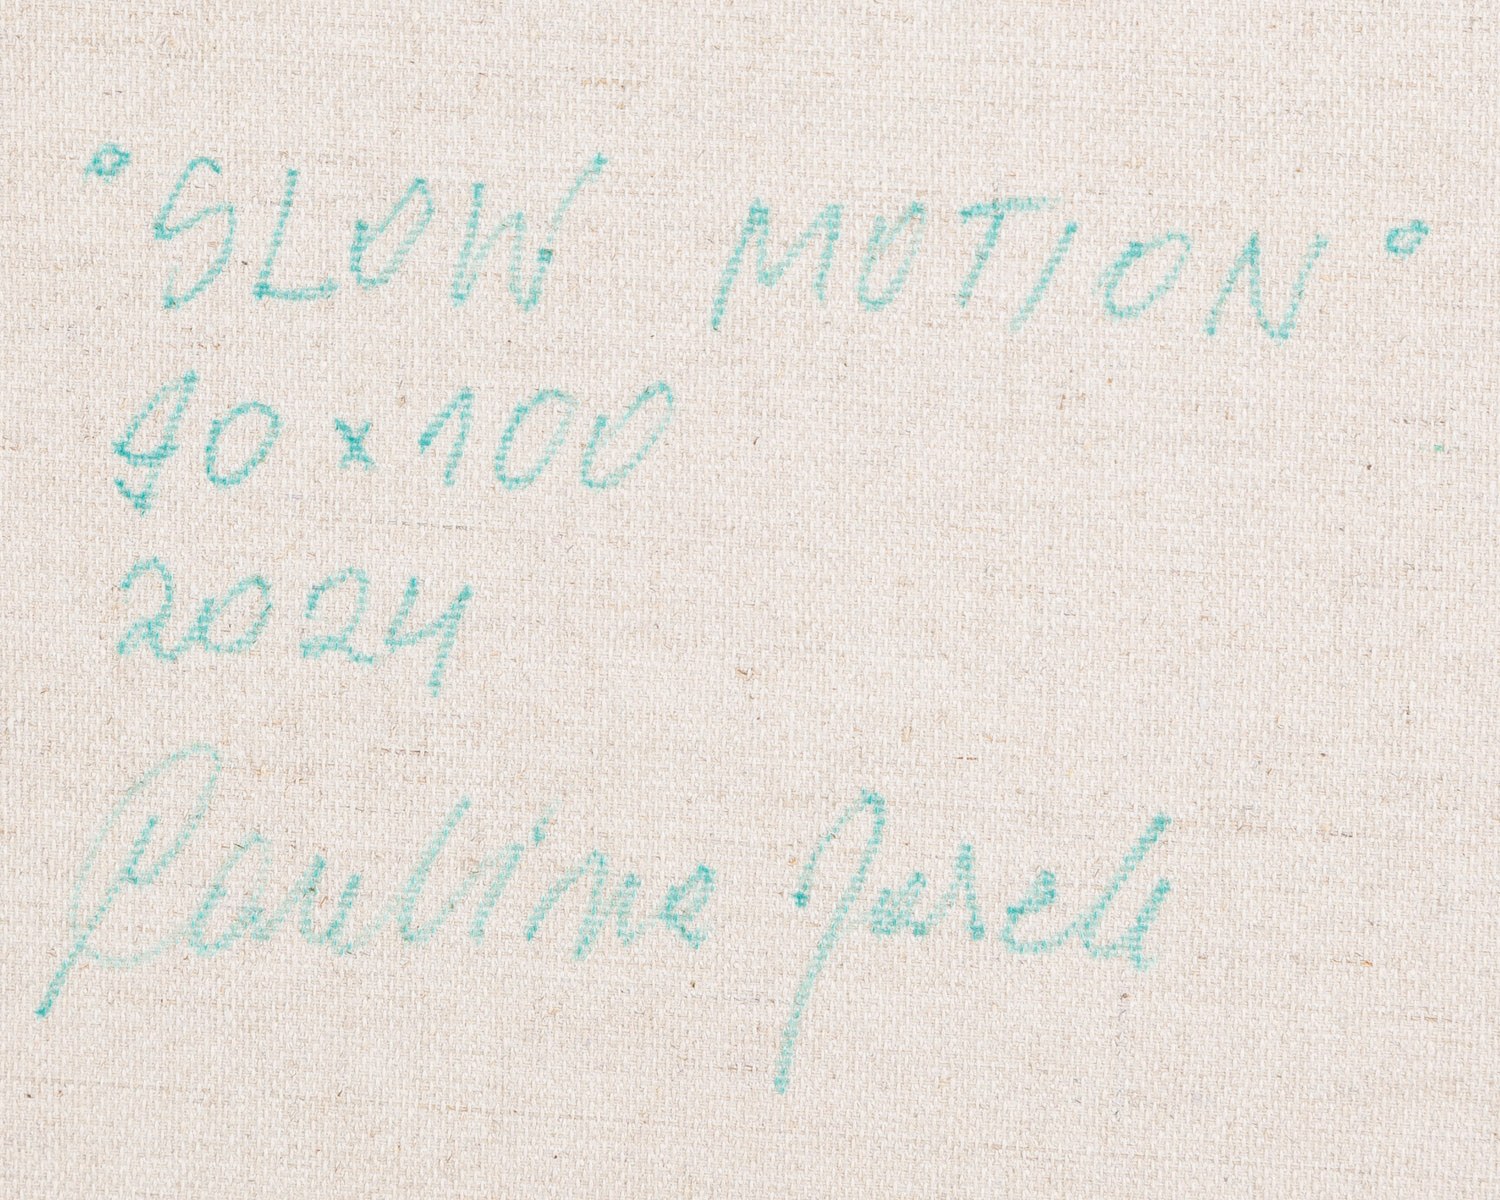 "SLOW MOTION"
90 x 100
2024
Pauline